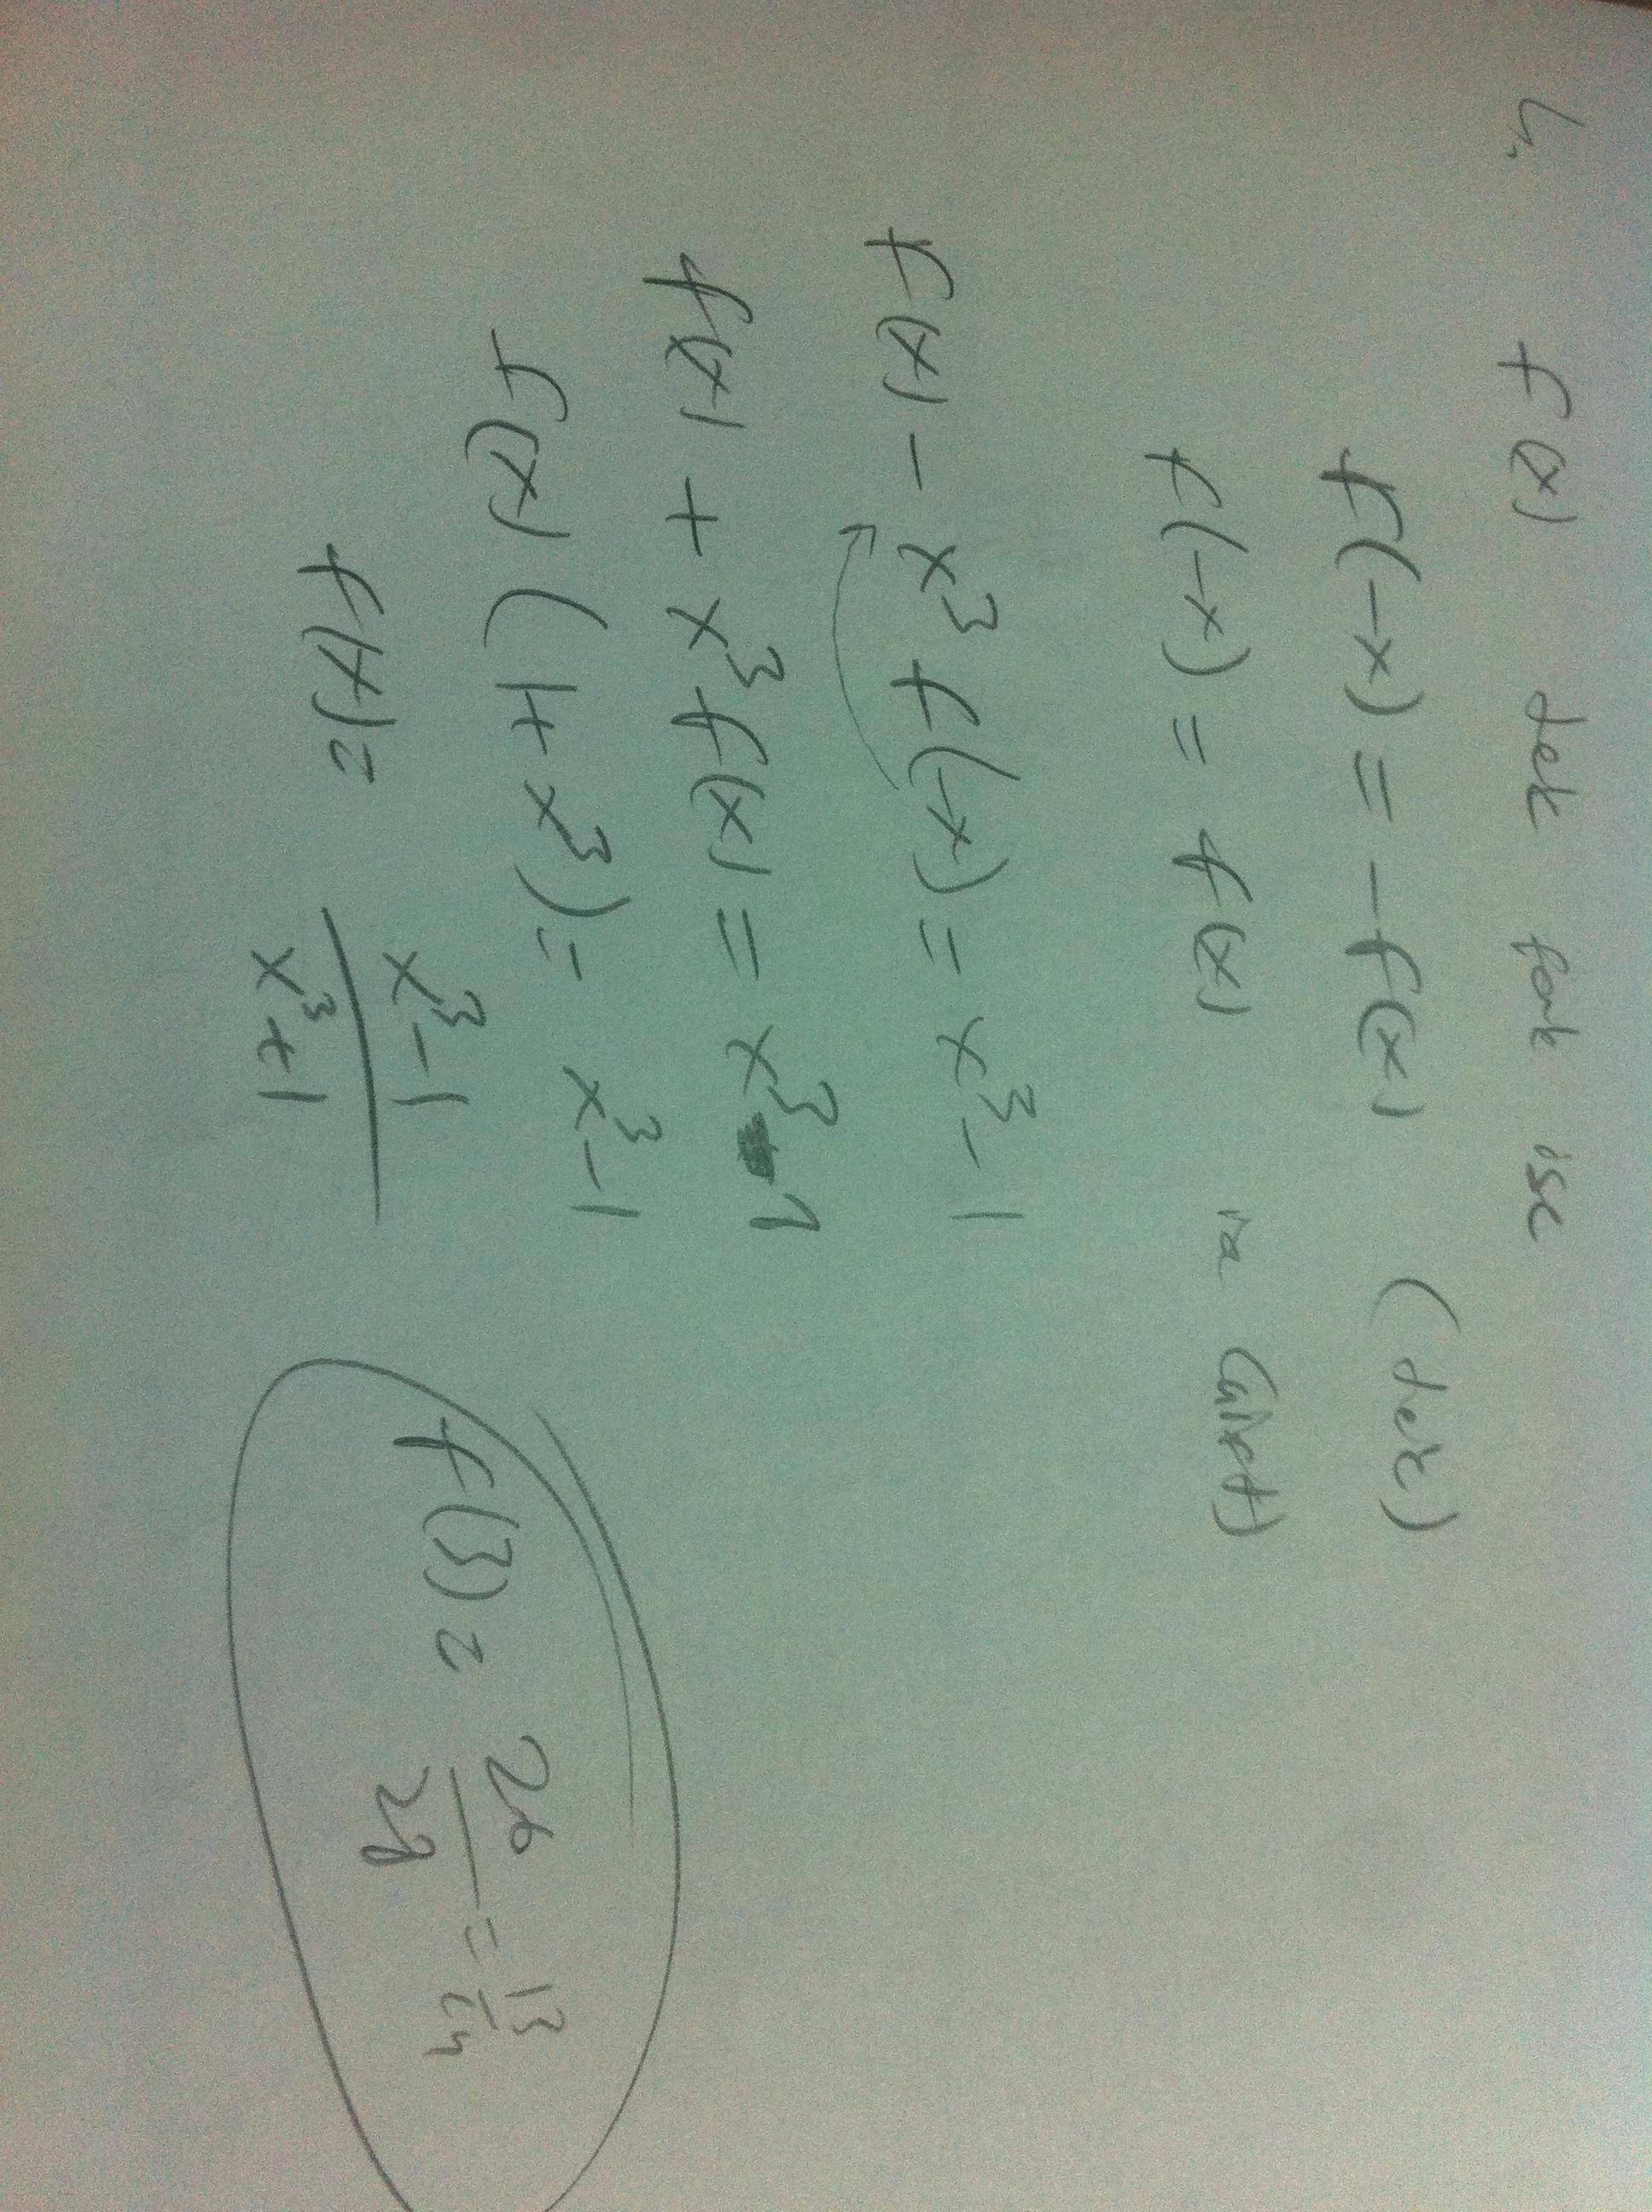 4. f(x) tek fonk ise
f(-x) = -f(x) (tek)
f(-x) = f(x) ise (çift)
f(x) - x³ f(-x) = x³ - 1
f(x) + x³ f(x) = x³ - 1
f(x) (1 + x³) = x³ - 1
f(x) = \frac{x³ - 1}{x³ + 1}
f(3) = \frac{26}{28} = \frac{13}{14}